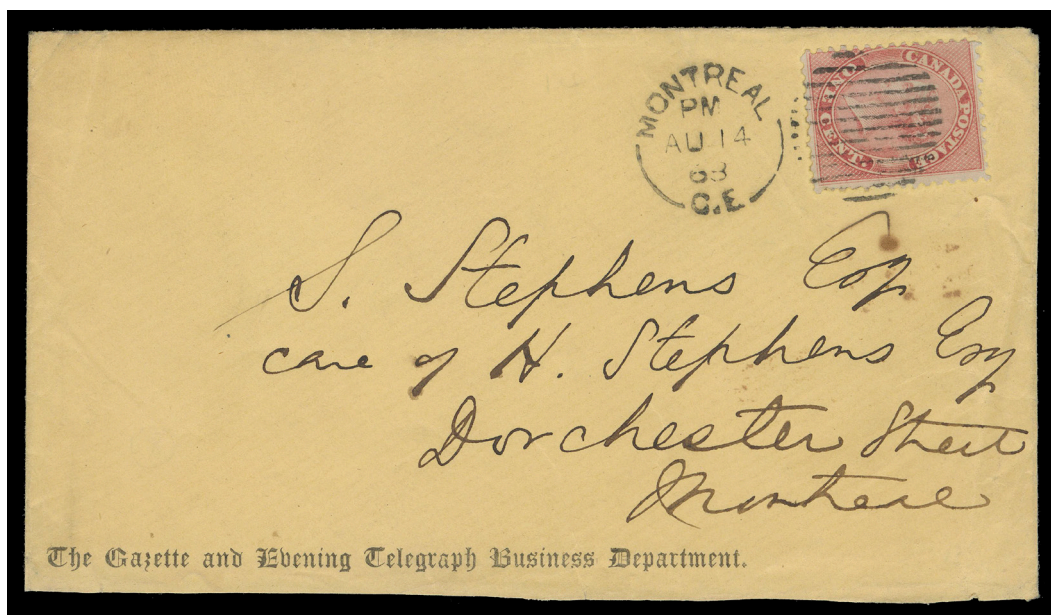 MONTREAL
PM
AU 14
68
C.E
CANADA POSTAGE
ONE CENT
S. Stephens Esq
care of H. Stephens Esq
Dorchester Street
Montreal
The Gazette and Evening Telegraph Business Department.